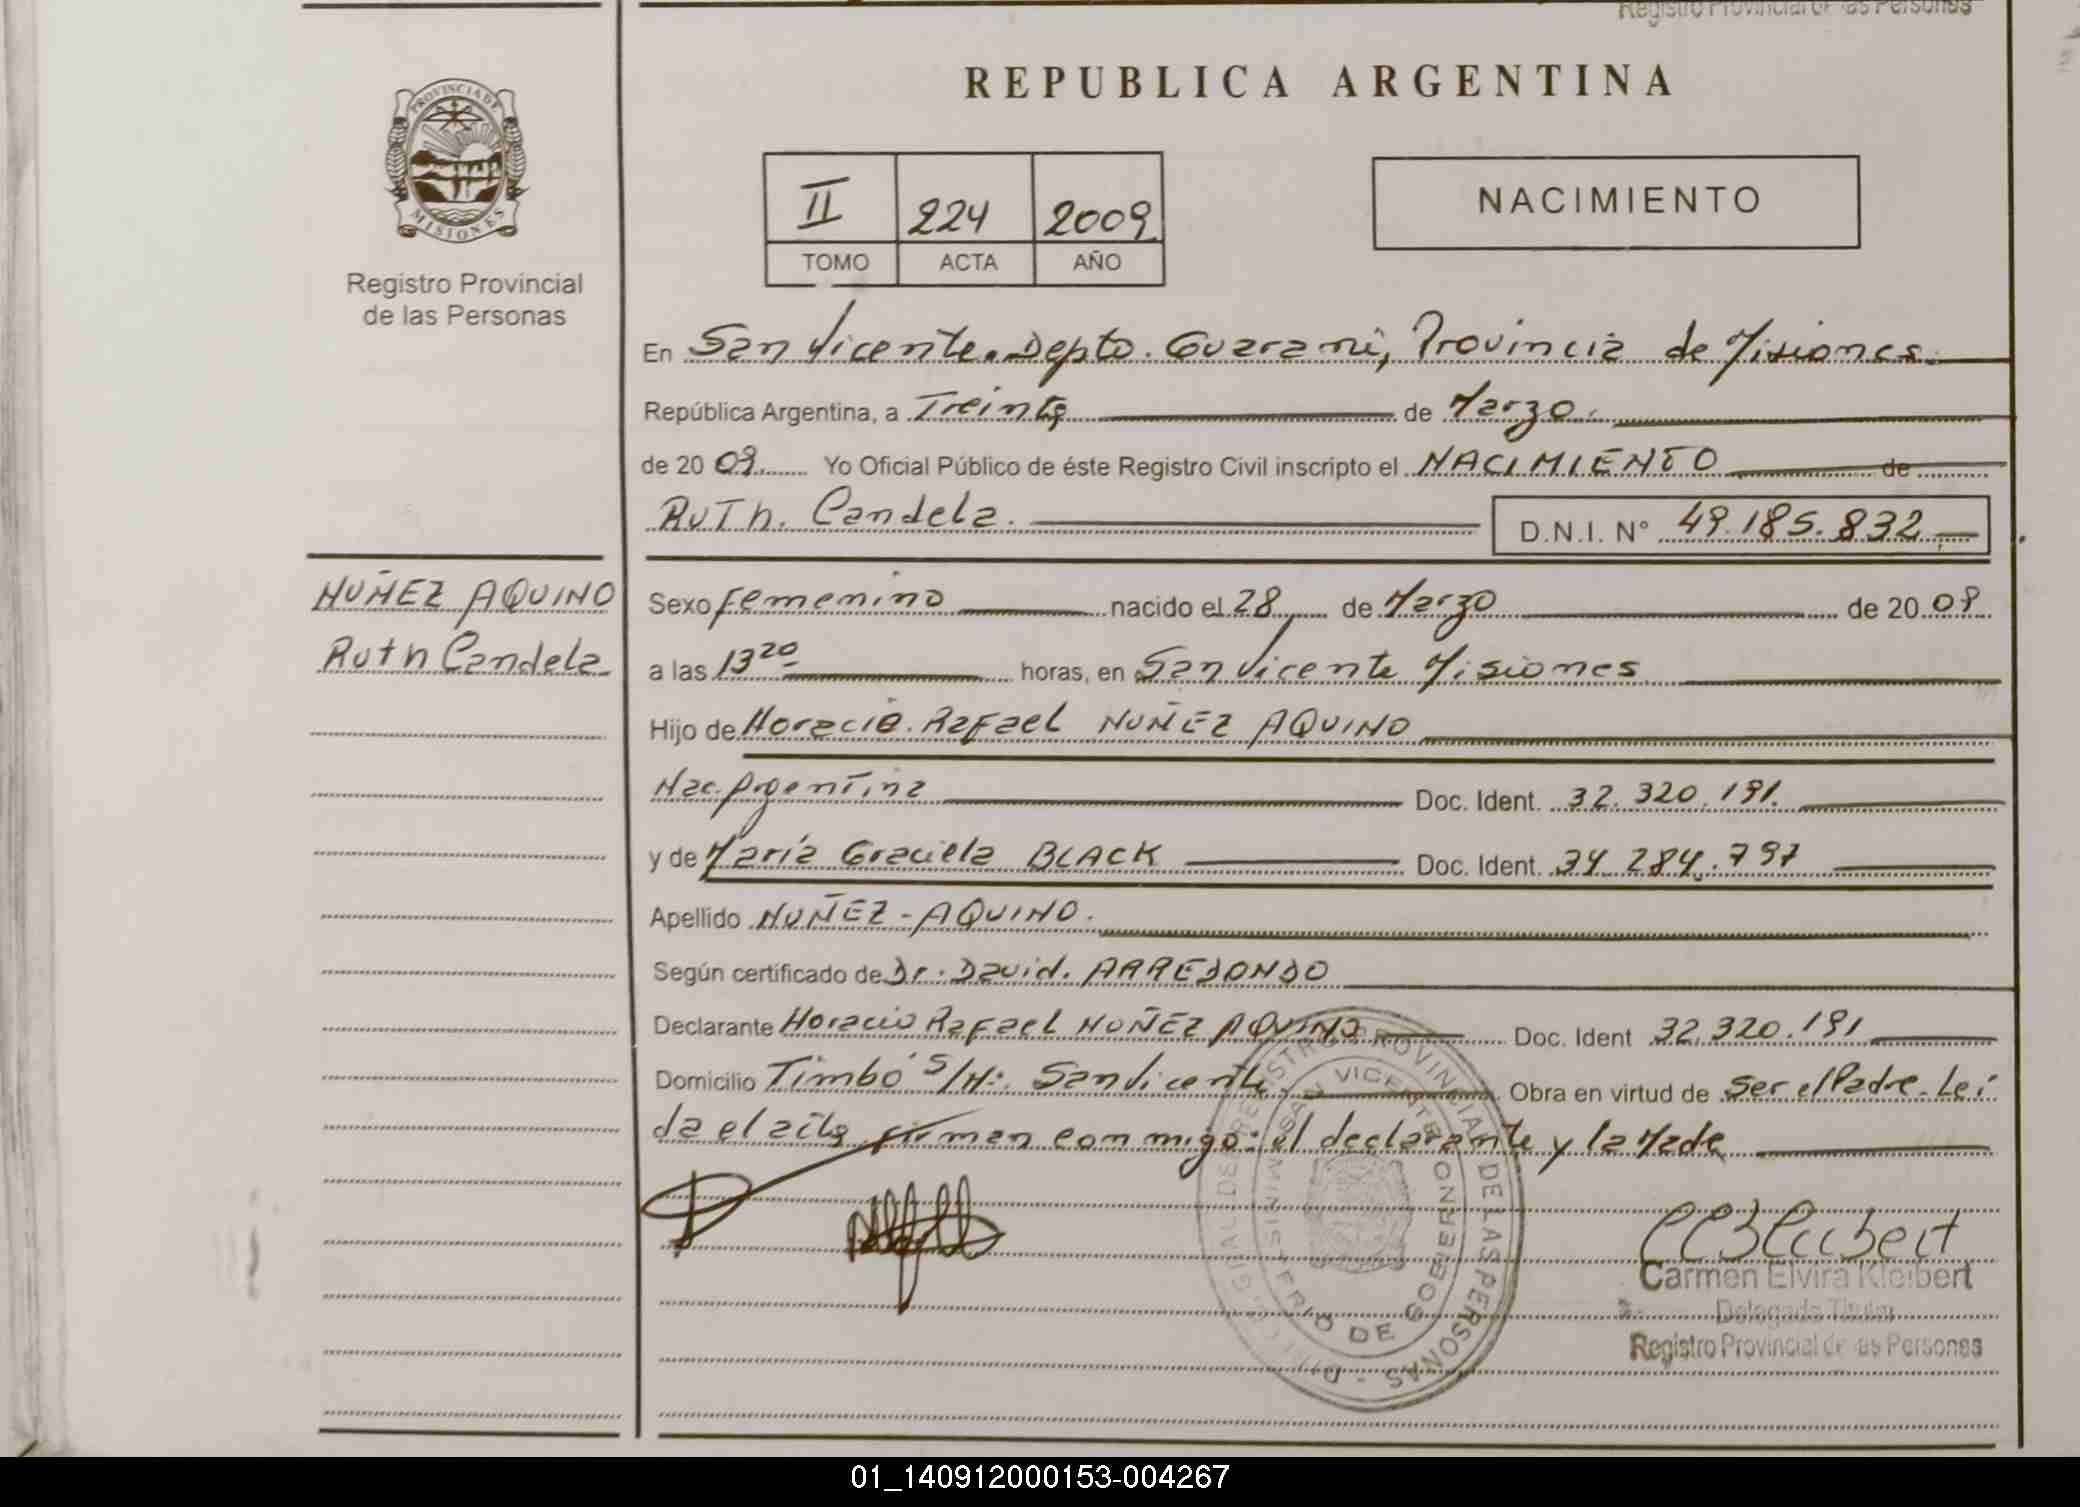 Registro Provincial de las Personas
REPUBLICA ARGENTINA
PROVINCIA DE
MISIONES
Registro Provincial
de las Personas
II 224 2009
TOMO ACTA AÑO
NACIMIENTO
En San Vicente. Depto. Guaraní, Provincia de Misiones.
República Argentina, a Treinta de Marzo.
de 20 09 Yo Oficial Público de éste Registro Civil inscripto el NACIMIENTO de
RuTh. Candela. D.N.I. N° 49.185.832
NUÑEZ AQUINO
Ruth Candela
Sexo femenino nacido el 28 de Marzo de 20 09
a las 13 20 horas, en San Vicente Misiones
Hijo de Horacio. Rafael NUÑEZ AQUINO
Nac. Argentina Doc. Ident. 32.320.191.
y de María Graciela BLACK Doc. Ident. 34.284.797
Apellido NUÑEZ-AQUINO.
Según certificado de Dr. David. ARREDONDO
Declarante Horacio Rafael NUÑEZ AQUINO Doc. Ident 32.320.191
Domicilio Timbó S/N: San Vicente Obra en virtud de Ser el Padre. Leí
da el acta firman conmigo: el declarante y la Made
REGISTRO PROVINCIAL DE LAS PERSONAS
SAN VICENTE
MINISTERIO DE GOBIERNO
Carmen Elvira Kleibert
Delegada Titular
Registro Provincial de las Personas
01_140912000153-004267